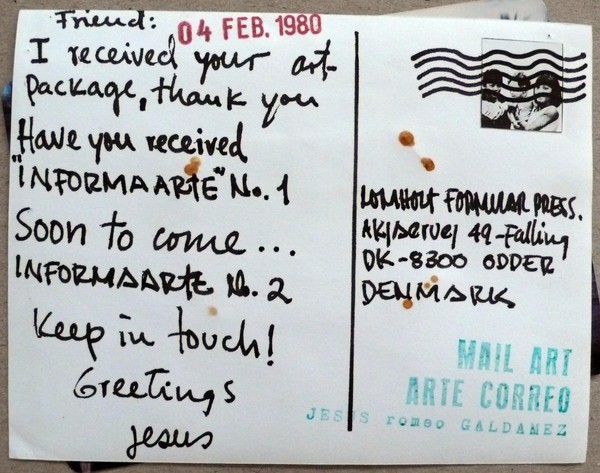 Friend:
04 FEB. 1980
I received your art-
package, thank you
Have you received
"INFORMAARTE" No. 1
Soon to come...
INFORMAARTE No. 2
Keep in touch!
Greetings
Jesus
LOMHOLT FORMULAR PRESS.
49-Falling
DK-8300 ODDER
DENMARK
MAIL ART
ARTE CORREO
JESUS romeo GALDAMEZ